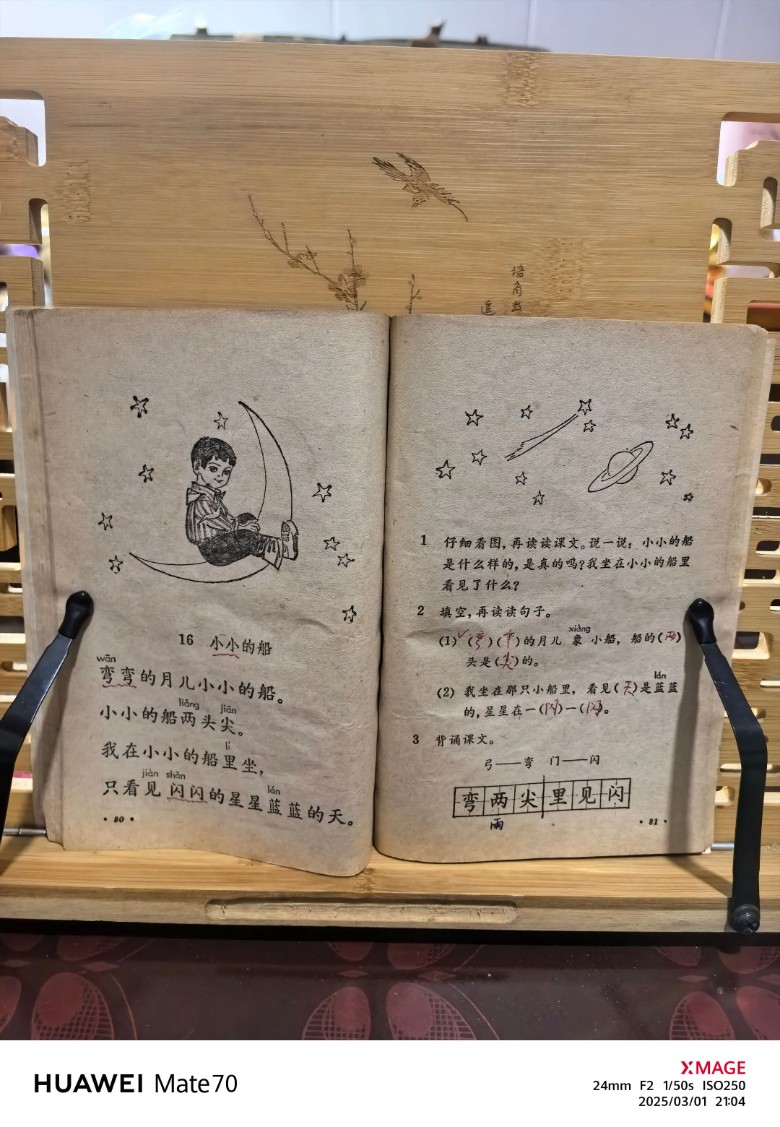 墙角数
遥
16 小小的船
wān
弯弯的月儿小小的船。
liǎng jiān
小小的船两头尖。
lǐ
我在小小的船里坐,
jiàn shǎn lán
只看见闪闪的星星蓝蓝的天。
·80·
1 仔细看图,再读读课文。说一说:小小的船
是什么样的,是真的吗?我坐在小小的船里
看见了什么?
2 填空,再读读句子。
xiàng
(1)✓(弯)(弯)的月儿象小船,船的(两)
头是(尖)的。
lán
(2) 我坐在那只小船里,看见(天)是蓝蓝
的,星星在一(闪)一(闪)。
3 背诵课文。
弓——弯 门——闪
弯两尖里见闪
·81·
HUAWEI Mate70
XMAGE
24mm F2 1/50s ISO250
2025/03/01 21:04